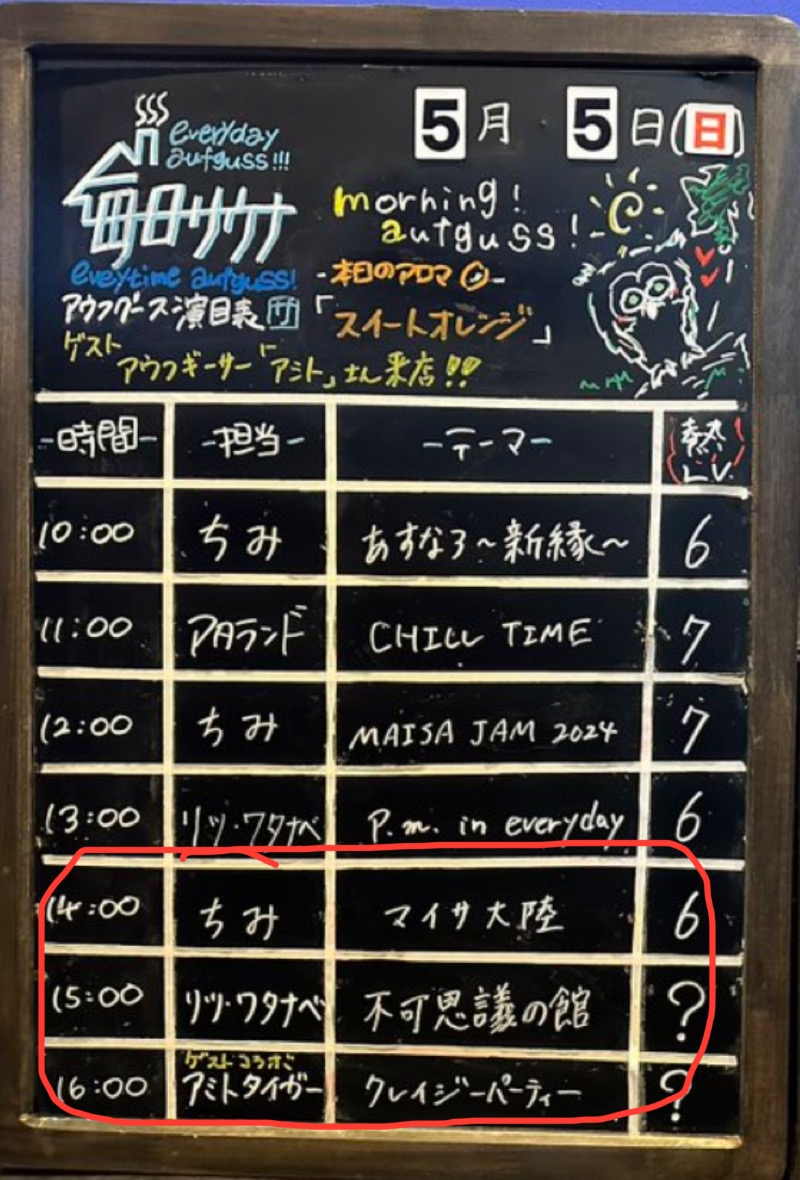 5月 5日(日)
everyday
aufguss!!!
毎日サウナ
everytime aufguss!
アウフグース演目表
morning!
autguss!
-本日のアロマ-
「スイートオレンジ」
ゲスト
アウフギーサー「アミト」さん来店!!
-時間- -担当- -テーマ- 熱LV.
10:00 ちみ あすなろ〜新緑〜 6
11:00 アAランド CHILL TIME 7
12:00 ちみ MAISA JAM 2024 7
13:00 リツ・ワタナベ P.m. in everyday 6
14:00 ちみ マイサ大陸 6
15:00 リツ・ワタナベ 不可思議の館 ?
ゲストコラボ
16:00 アミトタイガー クレイジーパーティー ?